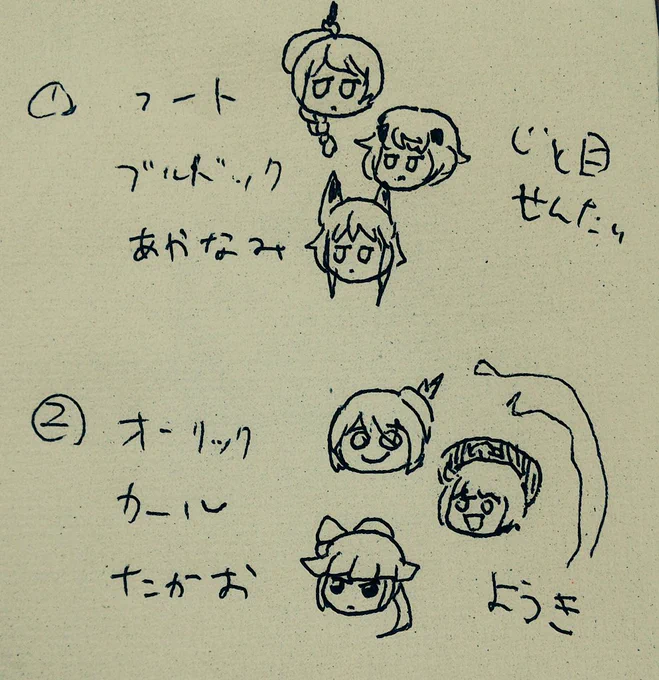 ① フート
ブルドック
あかなみ
じと目
せんたい
② オーリック
カール
たかお
ようき